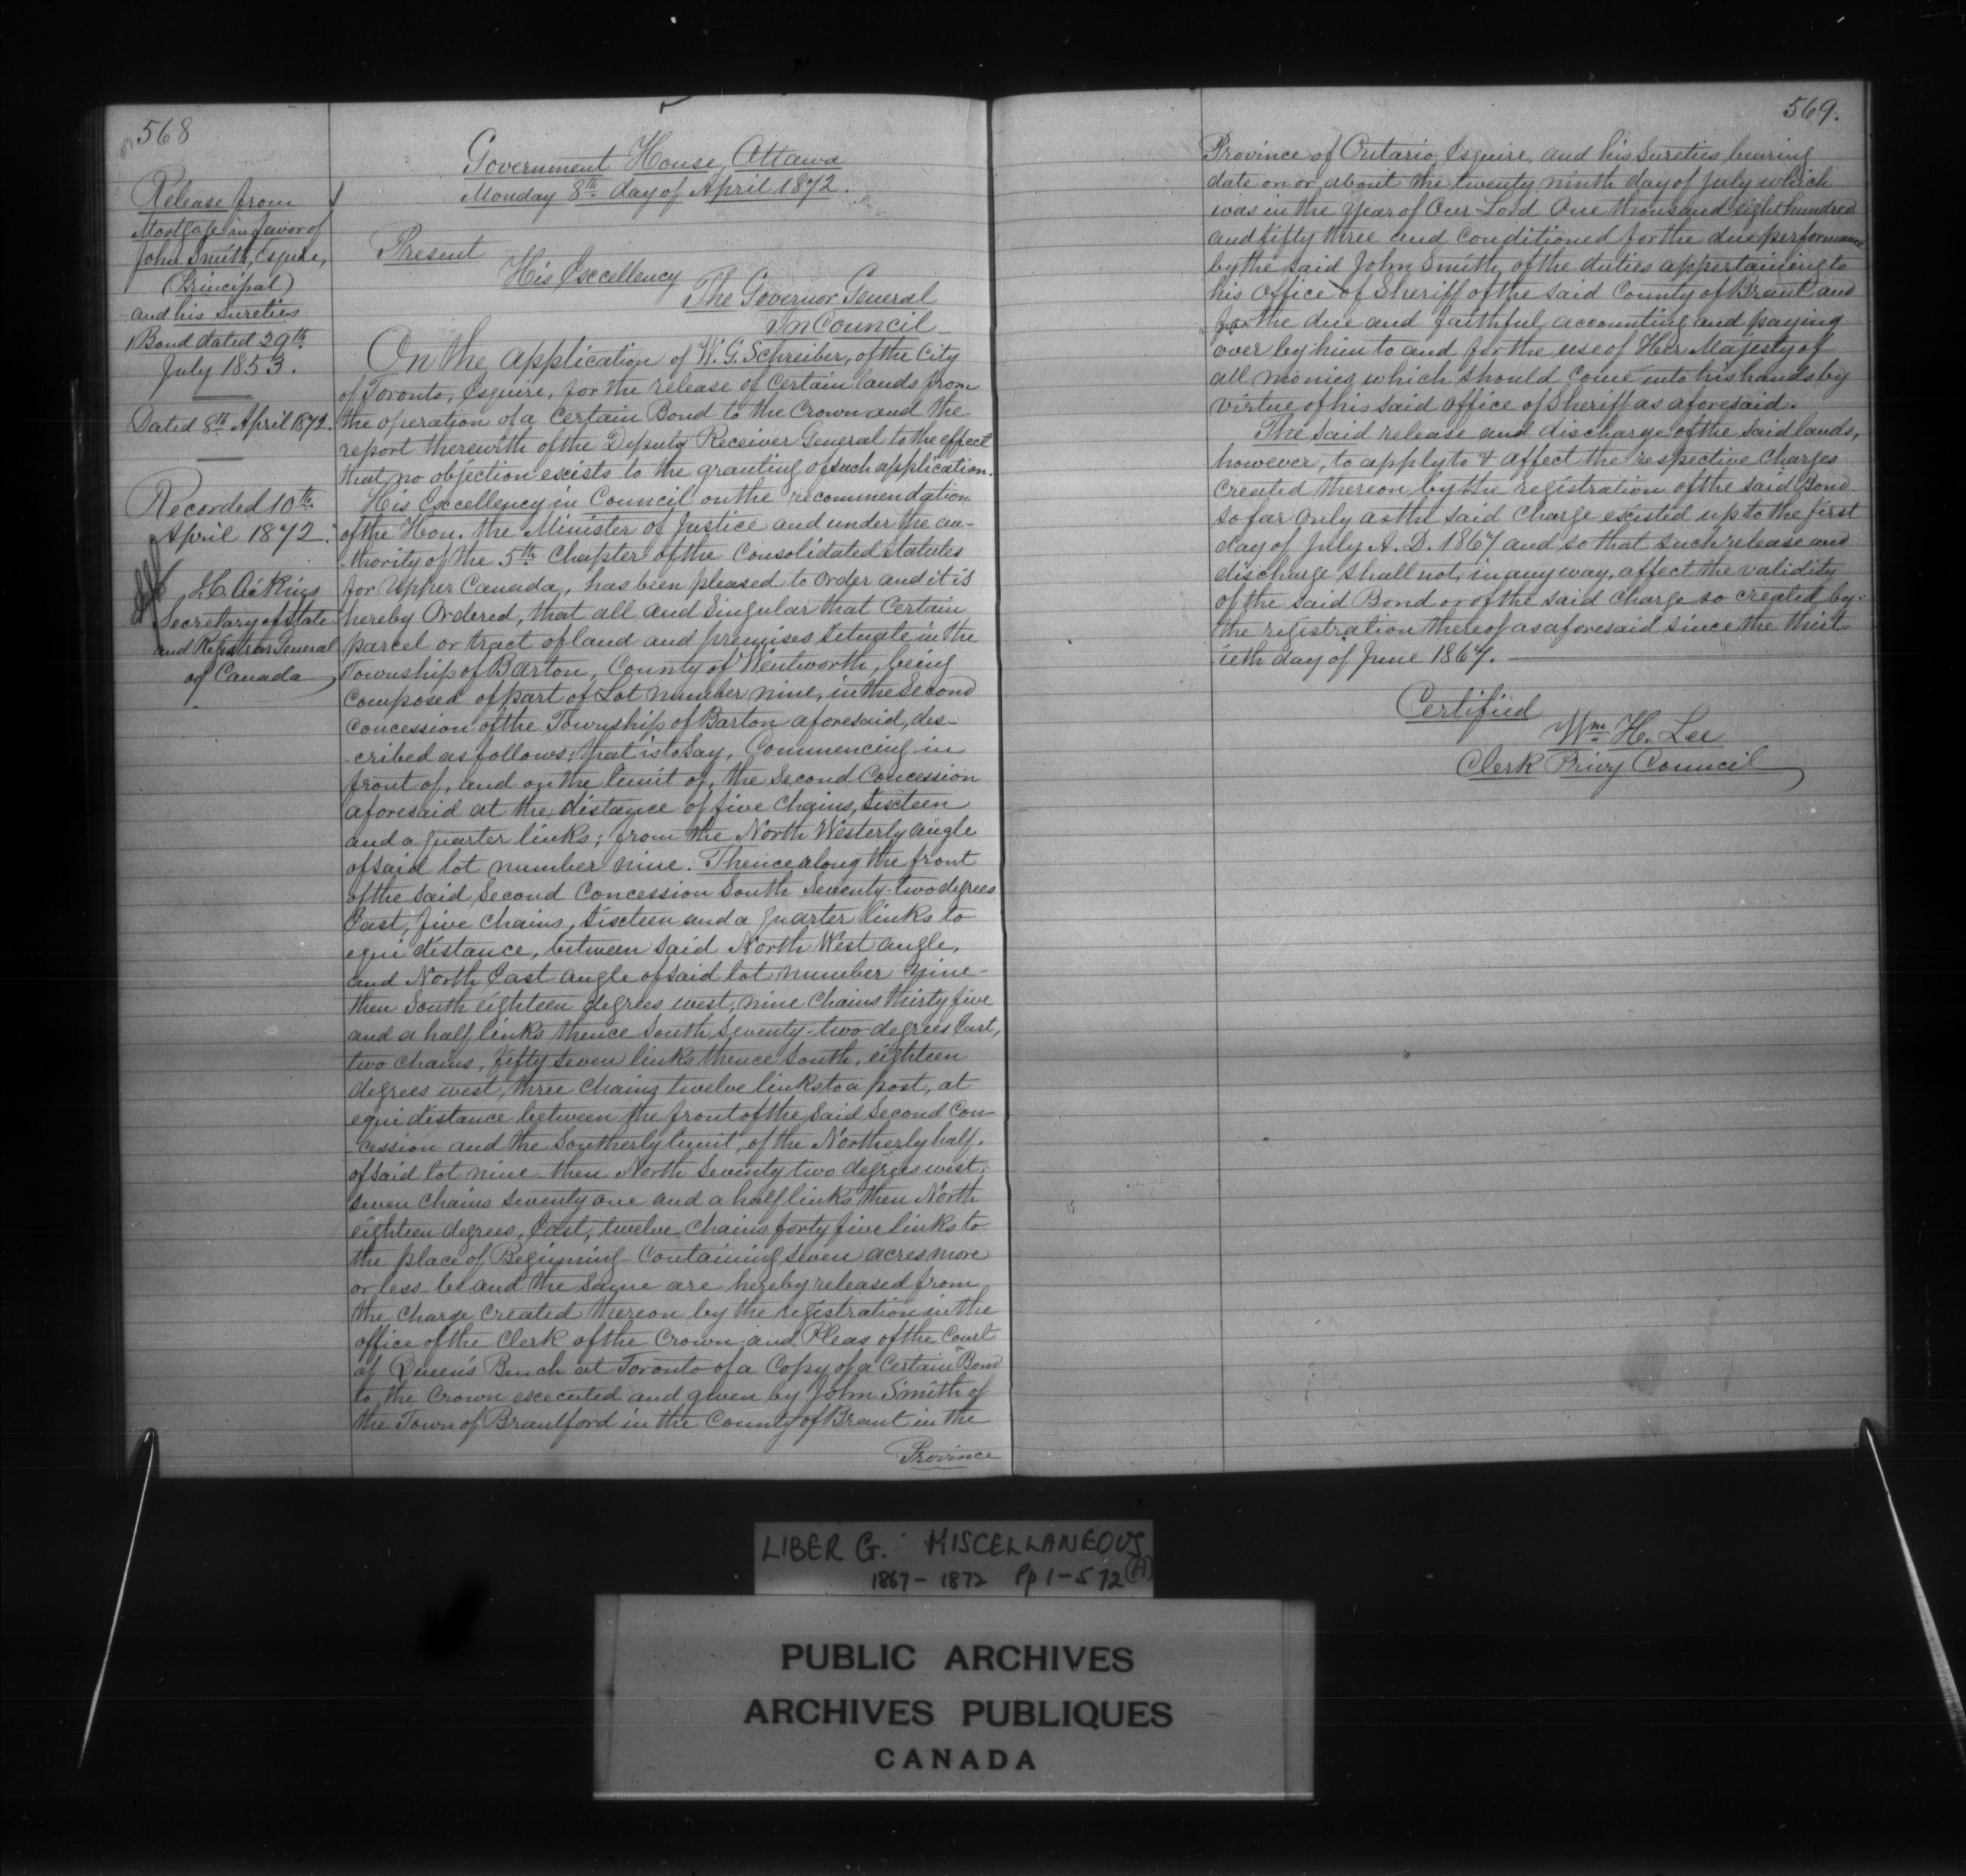 568
Release from
Mortgage in favor of
John Smith, Esquire,
(Principal)
and his Sureties
Bond dated 29th
July 1853.
Dated 8th April 1872.
Recorded 10th
April 1872.
J.C. Aikins
Secretary of State
and Registrar General
of Canada
Government House, Ottawa
Monday 8th day of April 1872.
Present
His Excellency
The Governor General
In Council
On the application of W. G. Schreiber, of the City
of Toronto, Esquire, for the release of Certain lands from
the operation of a Certain Bond to the Crown and the
report therewith of the Deputy Receiver General to the effect
that no objection exists to the granting of such application.
His Excellency in Council on the recommendation
of the Hon. the Minister of Justice and under the au-
-thority of the 5th Chapter of the Consolidated Statutes
for Upper Canada, has been pleased to Order and it is
hereby Ordered, that all and Singular that Certain
parcel or tract of land and premises Situate in the
Township of Barton, County of Wentworth, being
Composed of part of Lot number nine, in the Second
Concession of the Township of Barton aforesaid, des-
-cribed as follows; that is to Say, Commencing in
front of, and on the limit of, the Second Concession
aforesaid at the distance of five Chains, Sixteen
and a quarter links; from the North Westerly angle
of said lot number nine. Thence along the front
of the said Second Concession South Seventy-two degrees
East, five Chains, Sixteen and a quarter links to
equi distance, between said North West angle,
and North East angle of said lot number Nine-
then South eighteen degrees west, nine Chains thirty five
and a half links thence South, Seventy-two degrees East,
two Chains, fifty seven links thence South, eighteen
degrees west, three Chains twelve links to a post, at
equi distance between the front of the Said Second Con-
-cession and the Southerly limit, of the Northerly half,
of said lot nine - then North Seventy two degrees west,
seven Chains seventy one and a half links then North
eighteen degrees, East, twelve Chains forty five links to
the place of Beginning - Containing seven acres more
or less - be and the Same are hereby released from
the Charge Created thereon by the registration in the
office of the Clerk of the Crown and Pleas of the Court
of Queen's Bench at Toronto of a Copy of a Certain Bond
to the Crown executed and given by John Smith of
the Town of Brantford in the County of Brant in the
Province
569.
Province of Ontario, Esquire, and his Sureties bearing
date on or about the twenty ninth day of July which
was in the Year of Our Lord One thousand eight hundred
and fifty three and Conditioned for the due performance
by the said John Smith, of the duties appertaining to
his Office of Sheriff of the said County of Brant and
for the due and faithful accounting and paying
over by him to and for the use of Her Majesty of
all monies, which should Come into his hands by
virtue of his said Office of Sheriff as aforesaid.
The said release and discharge of the said lands,
however, to apply to & affect the respective Charges
Created thereon by the registration of the said Bond
so far only as the said Charge existed up to the first
day of July A. D. 1867 and so that such release and
discharge shall not, in any way, affect the validity
of the said Bond or of the said Charge so created by
the registration thereof as aforesaid since the thirt-
ieth day of June 1867.
Certified
Wm H. Lee
Clerk Privy Council
LIBER G. MISCELLANEOUS
1867-1872 Pp 1-572 (A)
PUBLIC ARCHIVES
ARCHIVES PUBLIQUES
CANADA